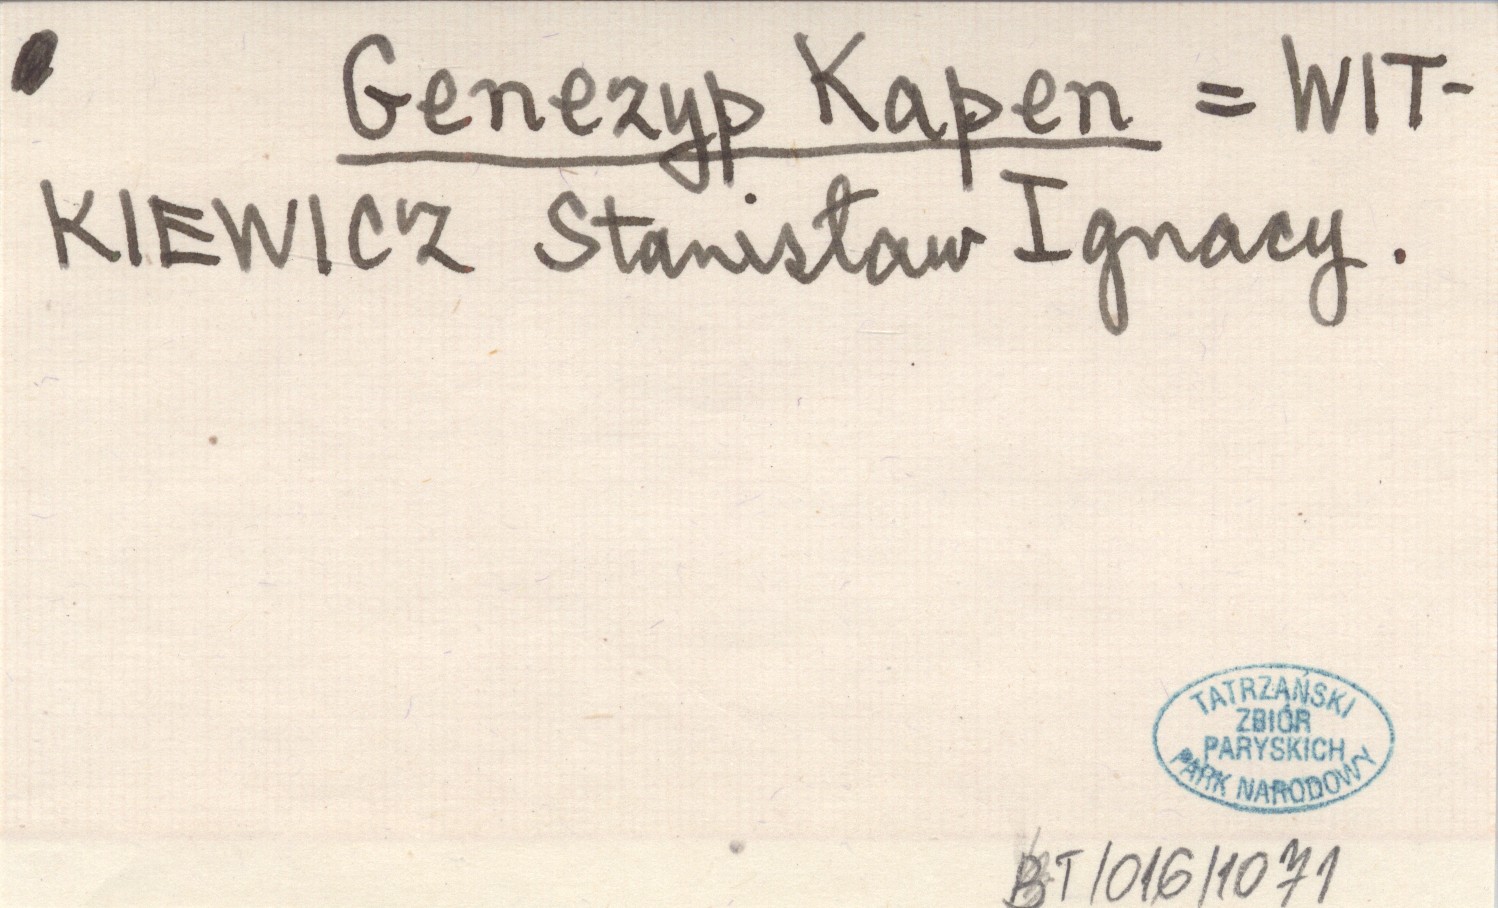 Genezyp Kapen = WIT-
KIEWICZ Stanisław Ignacy.
TATRZAŃSKI
ZBIÓR
PARYSKICH
PARK NARODOWY
BT/016/1071